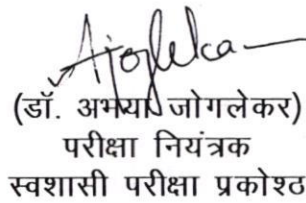 Ajogleka
(डॉ. अभया जोगलेकर)
परीक्षा नियंत्रक
स्वशासी परीक्षा प्रकोश्ठ